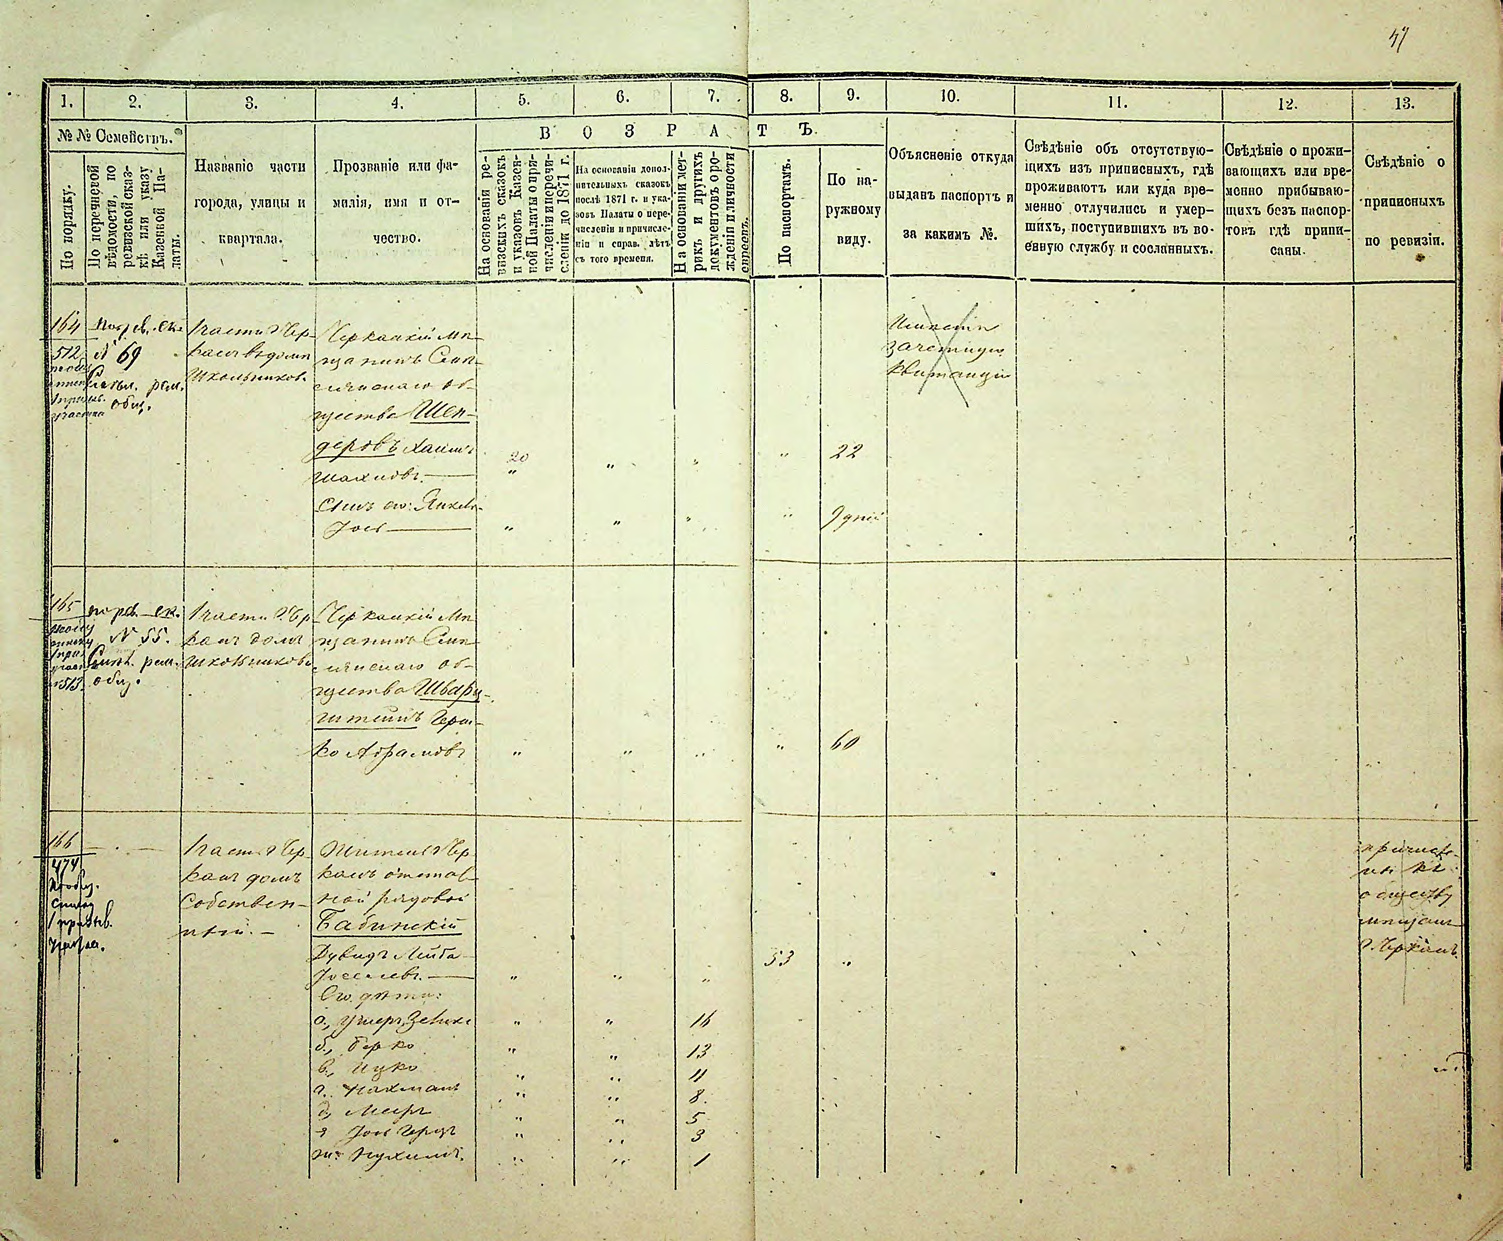 47
1. 2. 3. 4. 5. 6. 7. 8. 9. 10. 11. 12. 13.
№ № Семействъ.
По порядку.
По перечневой
вѣдомости, по
ревизской сказ-
кѣ или указу
Казенной Па-
латы.
Названіе части
города, улицы и
квартала.
Прозваніе или фа-
милія, имя и от-
чество.
ВОЗРАСТЪ
На основаніи ре-
визскихъ сказокъ
и указовъ Казен-
ной Палаты о при-
численіи и перечи-
сленіи до 1871 г.
На основаніи допол-
нительныхъ сказокъ
послѣ 1871 г. и ука-
зовъ Палаты о пере-
численіи и причисле-
ніи и справ. лѣтъ
съ того времени.
На основаніи мет-
рикъ и другихъ
документовъ о ро-
жденіи и личности
евреевъ.
По паспортамъ.
По на-
ружному
виду.
Объясненіе откуда
выданъ паспортъ и
за какимъ №.
Свѣдѣніе объ отсутствую-
щихъ изъ приписныхъ, гдѣ
проживаютъ или куда вре-
менно отлучились и умер-
шихъ, поступившихъ въ во-
енную службу и сосланныхъ.
Свѣдѣніе о прожи-
вающихъ или вре-
менно прибываю-
щихъ безъ паспор-
товъ гдѣ припи-
саны.
Свѣдѣніе о
приписныхъ
по ревизіи.
164
512
№ 69
рем.
общ.
1 части г. Чер-
касъ въ домѣ
Школьников.
Черкаскій мѣ-
щанинъ Смѣ-
лянскаго об-
щества Шен-
деровъ Хаимъ
20 " " " 22
Сынъ его: Янкель-
Іось " " " " 9 дней
Имѣетъ
зачетную
квитанцію
165
513
№ 55.
рем.
общ.
1 части г. Чер
касъ домъ
Школьникова
Черкаскій мѣ-
щанинъ Смѣ-
лянскаго об-
щества Шварц-
штейнъ Герш-
ко Абрамовъ " " " " 60
166
474
1 части г. Чер-
касъ домъ
Собствен-
ный. –
Житель г. Чер-
касъ отстав-
ной рядовой
Бабинскій
Дувидъ Лейба
Іосселевъ. " " " 53 "
Его дѣти:
а., Ушеръ Зелик " " 16
б., Берко " " 13
в., Ицко " " 11
г. Нахманъ " " 8
д, Меиръ " " 5
е Іось Герцъ " " 3
ж. Нухимъ. " " 1
причисле-
нъ къ
обществу
мѣщанъ
г. Черкасъ